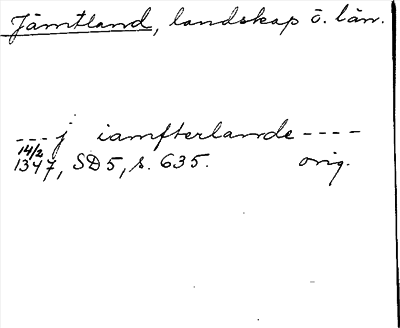 Jämtland, landskap o. län.
---j iamfterlande----
14/2
1347, SD5, s. 635. orig.